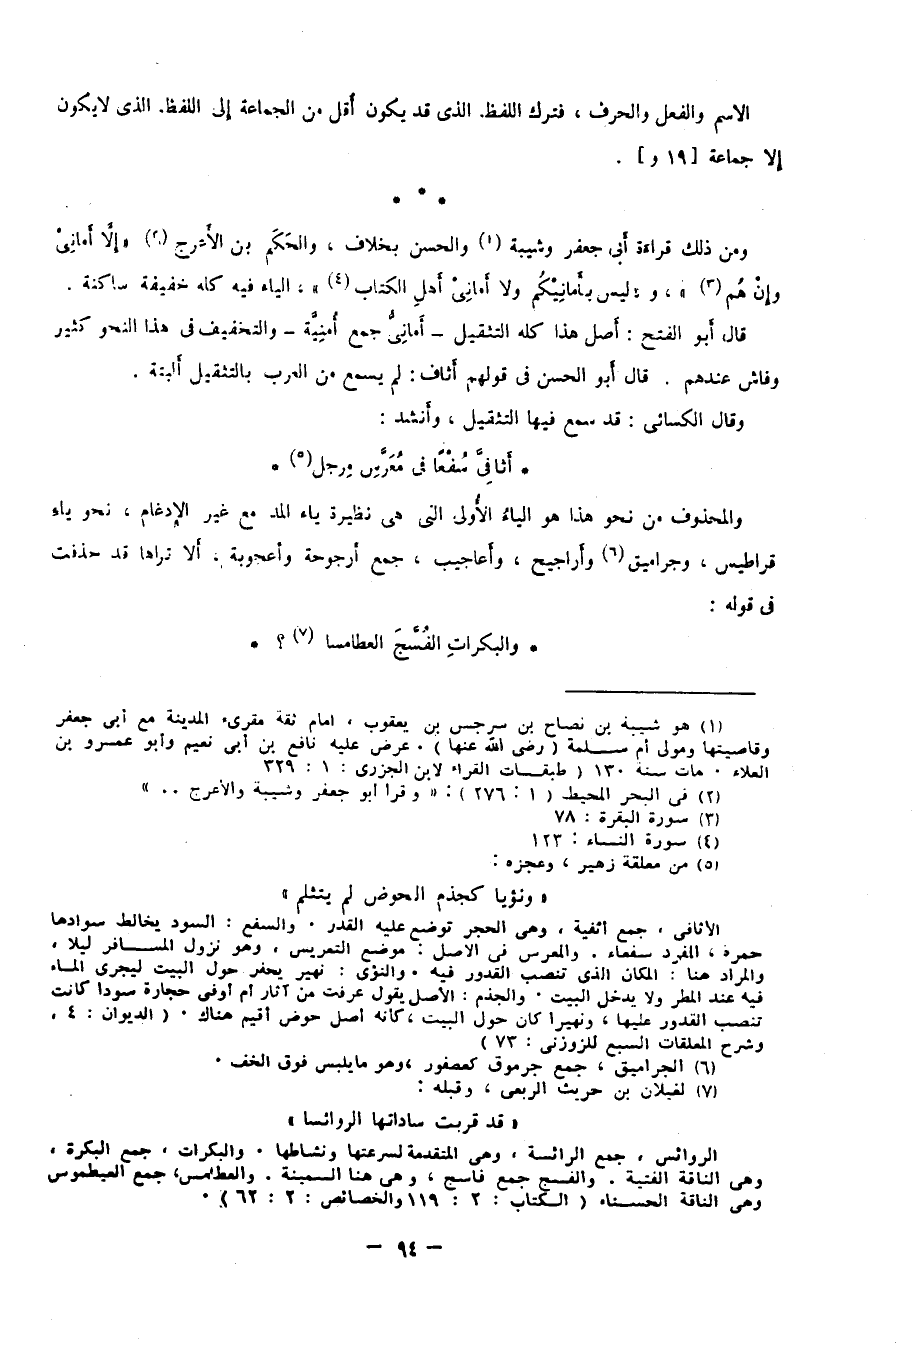 الاسم والفعل والحرف ، فترك اللفظ. الذى قد يكون أقل من الجماعة إلى اللفظ. الذى لايكون
إلا جماعة [ ١٩ و ] .
* * *
ومن ذلك قراءة أبى جعفر وشيبة (١) والحسن بخلاف ، والحَكَم بن الأعرج (٢) «إلَّا أمَانِىْ
وإنْ هُم (٣) » ، و «ليس بأمانِيْكُم ولا أمانِىْ أهلِ الكتاب (٤) » ، الياء فيه كله خفيفة ساكنة .
قال أبو الفتح : أصل هذا كله التثقيل – أمانىُّ جمع أُمنيَّة – والتخفيف فى هذا النحو كثير
وفاش عندهم . قال أبو الحسن فى قولهم أثاف : لم يسمع من العرب بالتثقيل ألبتة .
وقال الكسائى : قد سمع فيها التثقيل ، وأنشد :
* أثافىَّ سُفْعًا فى مُعَرَّسِ مِرجل(٥) *
والمحذوف من نحو هذا هو الياءُ الأُولى التى هى نظيرة ياء المد مع غير الإدغام ، نحو ياءِ
قراطيس ، وجراميق(٦) وأراجيح ، وأعاجيب ، جمع أرجوحة وأعجوبة . ألا تراها قد حذفت
فى قوله :
* والبكراتِ الفُسَّجَ العطامسا (٧) ؟ *
(١) هو شيبة بن نصاح بن سرجس بن يعقوب ، امام ثقة مقرىء المدينة مع أبى جعفر
وقاصيتها ومولى أم سلمة ( رضى الله عنها ) ٠ عرض عليه نافع بن أبى نعيم وأبو عمرو بن
العلاء ٠ مات سنة ١٣٠ ( طبقات القراء لابن الجزرى : ١ : ٣٢٩
(٢) فى البحر المحيط ( ١ : ٢٧٦ ) : « وقرأ أبو جعفر وشيبة والأعرج ٠٠ »
(٣) سورة البقرة : ٧٨
(٤) سورة النساء : ١٢٣
(٥) من معلقة زهير ، وعجزه :
« ونؤيا كجذم الحوض لم يتثلم »
الأثافى ، جمع أثفية ، وهى الحجر توضع عليه القدر ٠ والسفع : السود يخالط سوادها
حمرة ، المفرد سفعاء . والمعرس فى الأصل : موضع التعريس ، وهو نزول المسافر ليلا ،
والمراد هنا : المكان الذى تنصب القدور فيه ٠ والنؤى : نهير يحفر حول البيت ليجرى الماء
فيه عند المطر ولا يدخل البيت ٠ والجذم : الأصل يقول عرفت من آثار أم أوفى حجارة سودا كانت
تنصب القدور عليها ، ونهيرا كان حول البيت ، كأنه أصل حوض أقيم هناك ٠ ( الديوان : ٤ ،
وشرح المعلقات السبع للزوزنى : ٧٣ )
(٦) الجراميق ، جمع جرموق كعصفور ، وهو مايلبس فوق الخف ٠
(٧) لغيلان بن حريث الربعى ، وقبله :
« قد قربت ساداتها الروائسا »
الروائس ، جمع الرائسة ، وهى المتقدمة لسرعتها ونشاطها ٠ والبكرات ، جمع البكرة ،
وهى الناقة الفتية . والفسج جمع فاسج ، وهى هنا السمينة . والعطامس، جمع العيطموس
وهى الناقة الحسناء ( الكتاب : ٢ : ١١٩ والخصائص : ٢ : ٦٢ ) ٠
– ٩٤ –